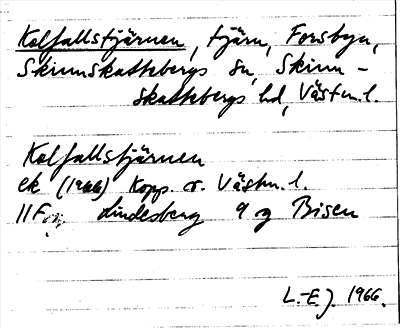 Kolfallstjärnen, tjärn, Forsbyn,
Skinnskattebergs sn, Skinn-
skattebergs hd, Västm. l.
Kolfallstjärnen
ek (1966) Kopp. o. Västm. l.
11F Lindesberg 9 g Bisen
L.-E. J. 1966.